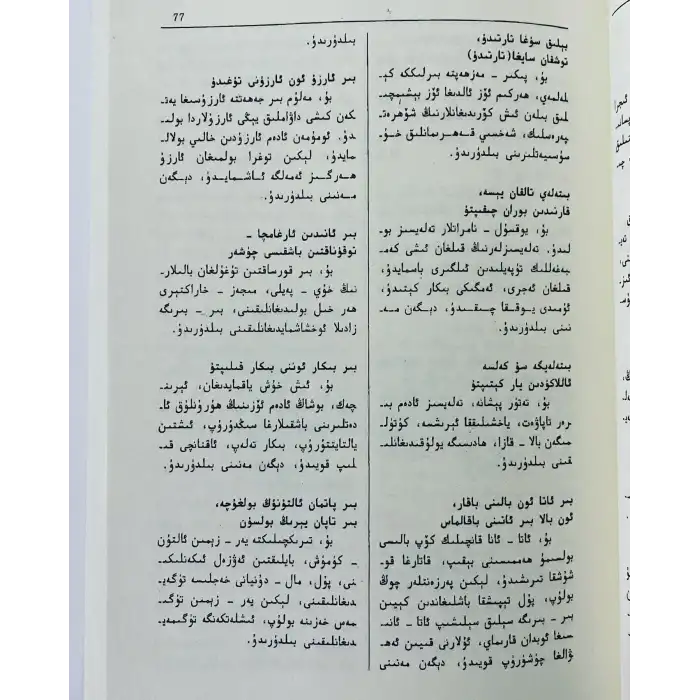 77
بېلىق سۇغا تارتىدۇ،
توشقان سايغا(تارتىدۇ)
بۇ، پىكىر – مەزھەپتە بىرلىككە كې‍ـ
لەلمەي، ھەركىم ئۆز ئالدىغا ئۆز بېشىمچىـ
لىق بىلەن ئىش كۆرىدىغانلارنىڭ شۆھرەتـ
پەرەسلىك، شەخسىي قەھرىمانلىق خۇـ
سۇسىيەتلىرىنى بىلدۈرىدۇ.
بىتەلەي تالقان يېسە،
قارنىدىن بوران چىقىپتۇ
بۇ، يوقسۇل – نامراتلار تەلەيسىز بوـ
لىدۇ. تەلەيسىزلەرنىڭ قىلغان ئىشى كەمـ
بەغەللىك تۈپەيلىدىن ئىلگىرى باسمايدۇ،
قىلغان ئەجرى، ئەمگىكى بىكار كېتىدۇ،
ئۈمىدى يوققا چىقىدۇ، دېگەن مەـ
نىنى بىلدۈرىدۇ.
بىتەلەيگە سۇ كەلسە
ئاللاكۆدىن يار كېتىپتۇ
بۇ، تەتۈر پېشانە، تەلەيسىز ئادەم بىـ
رەر تاپاۋەت، ياخشىلىققا ئېرىشسە، كۈتۈلـ
مىگەن بالا – قازا، ھادىسىگە يولۇقىدىغانلىـ
قىنى بىلدۈرىدۇ.
بىر ئاتا ئون بالىنى باقار،
ئون بالا بىر ئاتىنى باقالماس
بۇ، ئاتا – ئانا قانچىلىك كۆپ بالىسى
بولسىمۇ ھەممىسىنى بېقىپ، قاتارغا قوـ
شۇشقا تىرىشىدۇ، لېكىن پەرزەنتلەر چوڭ
بولۇپ، پۇل تېپىشقا باشلىغاندىن كېيىن
بىر – بىرىگە سېلىق سېلىشىپ ئاتا – ئانىـ
سىغا ئوبدان قارىماي، ئۇلارنى قىيىن ئەھـ
ۋالغا چۈشۈرۈپ قويىدۇ، دېگەن مەنىنى
بىلدۈرىدۇ.
بىر ئارزۇ ئون ئارزۇنى تۇغىدۇ
بۇ، مەلۇم بىر جەھەتتە ئارزۇسىغا يەتـ
كەن كىشى داۋاملىق يېڭى ئارزۇلاردا بولىـ
دۇ. ئومۇمەن ئادەم ئارزۇدىن خالىي بولالـ
مايدۇ، لېكىن توغرا بولمىغان ئارزۇ
ھەرگىز ئەمەلگە ئاشمايدۇ، دېگەن
مەنىنى بىلدۈرىدۇ.
بىر ئانىدىن ئارغامچا –
توقۇناقتىن باشقىسى چۈشەر
بۇ، بىر قورساقتىن تۇغۇلغان بالىلارـ
نىڭ خۇي – پەيلى، مىجەز – خاراكتېرى
ھەر خىل بولىدىغانلىقىنى، بىر – بىرىگە
زادىلا ئوخشاشمايدىغانلىقىنى بىلدۈرىدۇ.
بىر بىكار ئوننى بىكار قىلىپتۇ
بۇ، ئىش خۇش ياقمايدىغان، ئېرىنـ
چەك، بوشاڭ ئادەم ئۆزىنىڭ ھۇرۇنلۇق ئاـ
دەتلىرىنى باشقىلارغا سىڭدۈرۈپ، ئىشتىن
يالتايتتۈرۈپ، بىكار تەلەپ، ئاقنانچى قىـ
لىپ قويىدۇ، دېگەن مەنىنى بىلدۈرىدۇ.
بىر پاتمان ئالتۇنۇڭ بولغۇچە،
بىر تاپان يېرىڭ بولسۇن
بۇ، تىرىكچىلىكتە يەر – زېمىن ئالتۇن
– كۈمۈش، بايلىقتىن ئەۋزەل ئىكەنلىكىـ
نى، پۇل، مال – دۇنيانى خەجلىسە تۈگەيـ
دىغانلىقىنى، لېكىن يەر – زېمىن تۈگىـ
مەس خەزىنە بولۇپ، ئىشلەتكەنگە تۈگىمەيـ
دىغانلىقىنى بىلدۈرىدۇ.